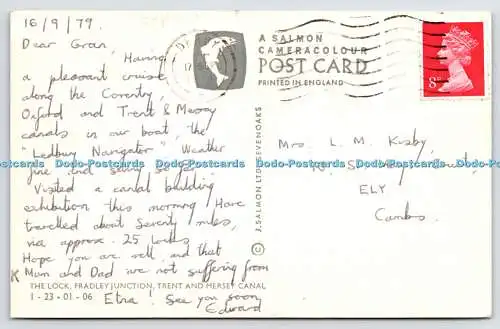 16/9/79.
Dear Gran,
Having
a pleasant cruise
along the Coventry,
Oxford and Trent & Mersey
canals in our boat, the
"Ledbury Navigator". Weather
fine and sunny so far.
Visited a canal building
exhibition this morning. Have
travelled about seventy miles,
via approx. 25 locks
Hope you are well, and that
Mum and Dad are not suffering from
Etna! See you soon,
Edward
THE LOCK, FRADLEY JUNCTION, TRENT AND MERSEY CANAL
1-23-01-06
J. SALMON LTD. SEVENOAKS
©
A SALMON
CAMERACOLOUR
POST CARD
PRINTED IN ENGLAND
8P
Mrs. L. M. Kisby,
ELY
Cambs.
Dodo-Postcards Dodo-Postcards Dodo-Postcards Dodo-Postcards Dodo-Postcards Dodo-Postcards